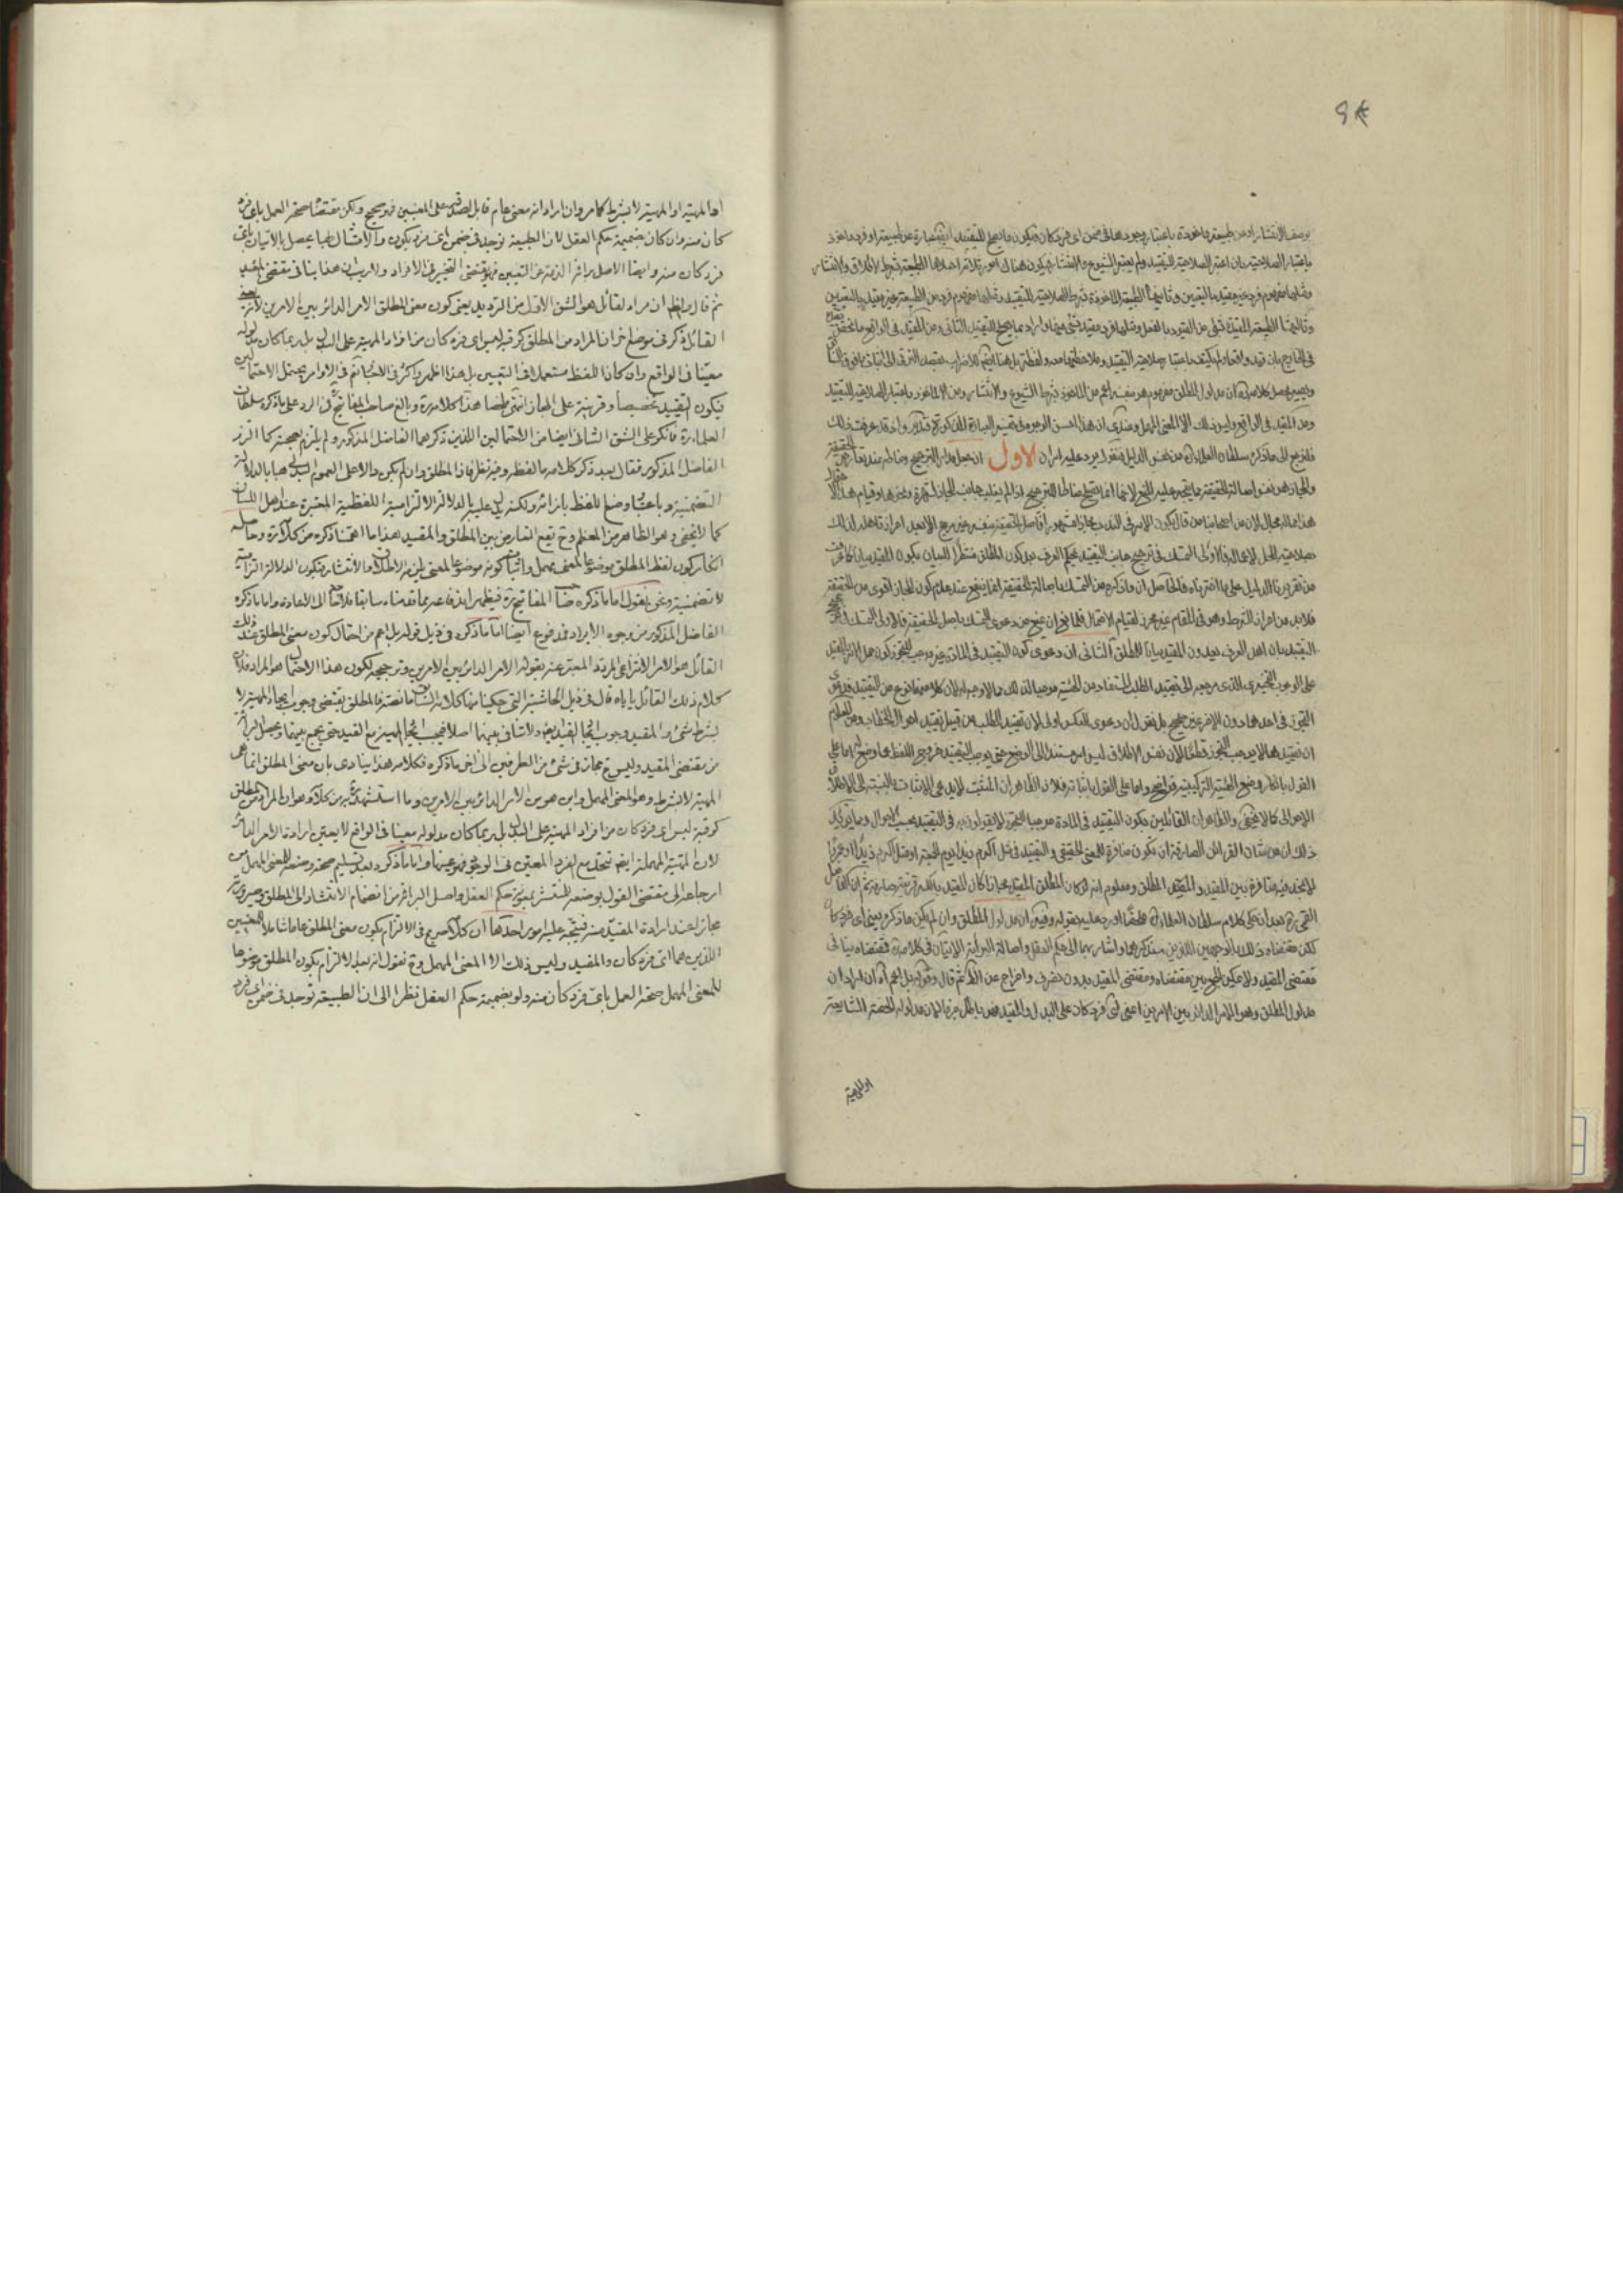 بوصف الانتشار او من طبيعة ماخوذة باعتبار وجودها فى ضمن اى فرد كان فيكون ما يصلح للتقييد عبارة عن طبيعة او فرد ماخوذ
باعتبار الصلاحية بان اعتبر الصلاحية للتقييد ولم يعتبر الشيوع والانتشار فيكون هناك امور ثلاثة احدها الطبيعة بشرط الاطلاق والانتشار
ومثلها مفهوم فرد غير مقيد بالتعيين وثانيها الطبيعة الماخوذة بشرط الصلاحية للتقييد ومثلها مفهوم فرد من الطبيعة غير مقيد بالتعيين
وثالثها الطبيعة المقيدة بشئ من القيود بالفعل ومثلها فرد مقيد بشئ منها واراد بما يصلح للتقييد الثانى ومن المقيد فى الواقع ما تحقق
فى الخارج بان قيد
ويصير محصل كلامه ان مدلول المطلق مفهوم هو بنفسه اعم من الماخوذ بشرط الشيوع والانتشار ومن الماخوذ باعتبار الصلاحية للتقييد
ومن المقيد فى الواقع وليس ذلك الا المعنى المهمل وعندى ان هذا احسن الوجوه فى تفسير العبارة المذكورة فتدبر واذ قد عرفت ذلك
فلنرجع الى ما ذكره سلطان العلماء من نفس الدليل فنقول يرد عليه امران الاول ان جعل مدار الترجيح ومناطه عند تعارض الحقيقة
والمجاز هو نفس اصالة الحقيقة مما يتجه عليه المنع لانها انما تصلح مناطا للترجيح اذا لم يغلب جانب المجاز لشهرة وغيرها وقيام هذا الاحتمال
هذا مما لا مجال
صلاحية المحل للاعمال فالاولى التمسك فى ترجيح جانب التقييد بحكم العرف بعد كون المطلق منتظرا للبيان بكون المقيد بيانا كما عرفت
من تقريرنا الدليل على ما اخترناه فالحاصل ان ما ذكره من التمسك باصالة الحقيقة انما ينفع عند عدم كون المجاز اقوى من الحقيقة
فلا بد من احراز الشرط وهو فى المقام غير محرز لقيام الاحتمال
التقييد بان اهل العرف يعدون المقيد بيانا للمطلق الثانى ان دعوى كون التقييد فى المادة غير موجب للتجوز
على الوجوب التخييرى الذى مرجعه الى تقييد الطلب المستفاد من الهيئة موجبا لذلك مما لا وجه له لان كلا منهما نوع من التقييد
التجوز فى احدهما دون الاخر غير صحيح بل نقول ان دعوى العكس اولى لان تقييد الطلب من قبيل تقييد احوال الخطاب ومن المعلوم
ان تقييدها لا يوجب التجوز قطعا لان نفس الاطلاق ليس امرا مستندا الى الوضع حتى يوجب التقييد خروج اللفظ عما وضع له اما على
القول بانكار وضع الهيئة التركيبية فواضح واما على القول باثباته فلان الظاهر ان المثبت لا يدعى الاثبات بالنسبة الى الاطلاق
الاحوالى كما لا يخفى والظاهر ان القائلين بكون التقييد فى المادة موجبا للتجوز لا يقولون به فى التقييد بحسب الاحوال ومما يؤكد
ذلك ان من شان القرائن الصارفة ان تكون منافرة للمعنى الحقيقى والتقييد فى مثل اكرم زيدا يوم الجمعة او مثل اكرم زيدا
لا يتحقق فيه منافرة بين المقيد والمقيد المطلق ومعلوم انه لو كان المطلق المقيد مجازا كان المقيد بالكسر قرينة صارفة ثم ان الفاضل
القمى ره بعد ان حكى كلام سلطان العلماء ره ملخصا اورد عليه بقوله وفيه ان مدلول المطلق وان لم يكن ما ذكره يعنى اى فرد كان
لكن مقتضاه ذلك بالوجهين اللذين سنذكرهما واشار بهما الى حكم العقل واصالة البرائة الاتيان فى كلامه فمقتضاه ينافى
مقتضى المقيد ولا يمكن الجمع بين مقتضاه ومقتضى المقيد بدون تصرف واخراج عن الاصل ثم قال وقوله بل اعم آه ان اراد ان
مدلول المطلق وهو الامر الدائر بين الامرين اعنى اى فرد كان على البدل والمقيد
او المهية
او المهية او المهية لا بشرط كما مر وان اراد انه معنى عام قابل لصدقه على المعنيين فهو صحيح ولكن مقتضاه صحة العمل باى فرد
كان منه وان كان بضميمة حكم العقل لان الطبيعة توجد فى ضمن اى فرد يكون والامتثال بها يحصل بالاتيان باى
فرد كان منه وايضا الاصل برائة الذمة عن التعيين فهو يقتضى التخيير فى الافراد ولا ريب ان هذا ينافى مقتضى المقيد
ثم قال والظ ان مراد القائل هو الشق الاول من الترديد يعنى كون معنى المطلق الامر الدائر بين الامرين لان
القائل ذكر فى موضع اخر ان المراد من المطلق كرقبة ليس اى فرد كان من افراد المهية على البدل بل ربما كان مدلوله
معينا فى الواقع وان كان اللفظ مستعملا فى التعيين بل هذا اظهر واكثر فى الاخبار ثم فى الاوامر يحتمل الاحتمالين
فيكون التقييد تخصيصا وقرينة على المجاز انتهى ملخصا هذا كلامه ره وبالغ صاحب المفاتيح ره فى الرد على ما ذكره سلطان
العلماء ره فانكر على الشق الثانى ايضا من الاحتمالين اللذين ذكرهما الفاضل المذكور ولم يلتزم بصحته كما التزم
الفاضل المذكور فقال بعد ذكر كلامه ما لفظه وفيه نظر فان المطلق وان لم يكن دالا على العموم البدلى هنا بالدلالة
التضمنية وباعتبار وضع اللفظ بازائه ولكنه يدل عليه بالدلالة الالتزامية اللفظية المعتبرة عند اهل اللسان
كما لا يخفى وهو الظاهر من المعظم وح يقع التعارض بين المطلق والمقيد هذا ما اهمنا ذكره من كلامه ره وحاصله
انكار كون لفظ المطلق موضوعا لمعنى مهمل واثبات كونه موضوعا لمعنى يلزمه الاطلاق والانتشار فتكون الدلالة التزامية
لا تضمنية ونحن نقول اما ما ذكره صاحب المفاتيح ره فيظهر اندفاعه بما قدمناه سابقا فلا حاجة الى الاعادة واما ما ذكره
الفاضل المذكور من وجوه الايراد فمدفوع ايضا اما ما ذكره فى ذيل قوله بل اعم من احتمال كون معنى المطلق عند ذلك
القائل هو الامر الانتزاعى المردد المعبر عنه بقوله الامر الدائر بين الامرين وترجيحه لكون هذا الاحتمال هو المراد فلان
كلام ذلك القائل ياباه قال فى ذيل الحاشية التى حكينا منها كلامه السابق ما نصه فالمطلق يقتضى وجوب ايجاد المهية لا
بشرط شئ والمقيد وجوب ايجاد القيد معه ولا تنافى بينهما اصلا فيجب ايجاد المهية مع القيد حتى يجمع بينهما ويحصل البرائة
من مقتضى المقيد وليس ح مجاز فى شئ من الطرفين الى اخر ما ذكره فكلامه هذا ينادى بان معنى المطلق انما هى
المهية لا بشرط وهو المعنى المهمل واين هو من الامر الدائر بين الامرين وما استشهد به من كلامه وهو ان المراد من المطلق
كرقبة ليس اى فرد كان من افراد المهية على البدل بل ربما كان مدلوله معينا فى الواقع لا يعين ارادة الامر الدائر
لان المهية المهملة ايضا تتحد مع الفرد المعين فى الوجود فهو عينها واما ما ذكره بعد تسليم صحة وضعه للمعنى المهمل من
ارجاعه الى مقتضى القول بوضعه للمنتشر بمعونة حكم العقل واصل البرائة من انضمام الانتشار الى المطلق وصيرورته
مجازا عند ارادة المقيد منه فيتجه عليه امور احدها ان كلامه صريح فى الالتزام بكون معنى المطلق عاما شاملا للمعنيين
اللذين هما اى فرد كان والمقيد وليس ذلك الا المعنى المهمل وح نقول انه بعد الالتزام بكون المطلق موضوعا
للمعنى المهمل صحة العمل باى فرد كان منه ولو بضميمة حكم العقل نظرا الى ان الطبيعة توجد فى ضمن اى فرد